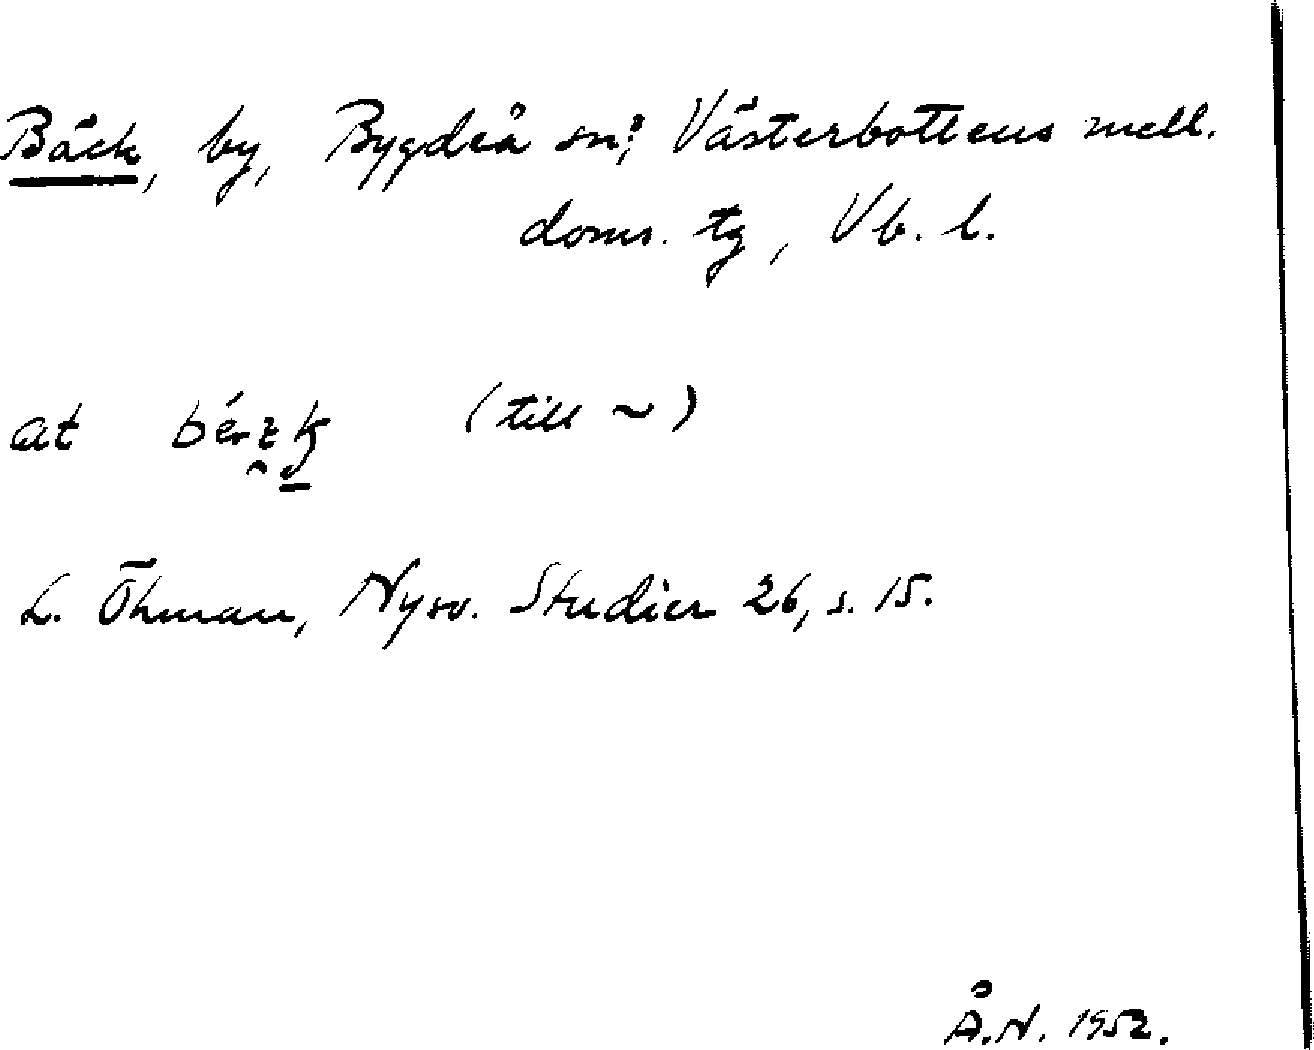 Bäck, by, Bygdeå sn?, Västerbottens mell.
doms. tg, Vb. l.
at (till ~)
L. Öhman, Nysv. Studier 26, s. 15.
Å.N. 1952.